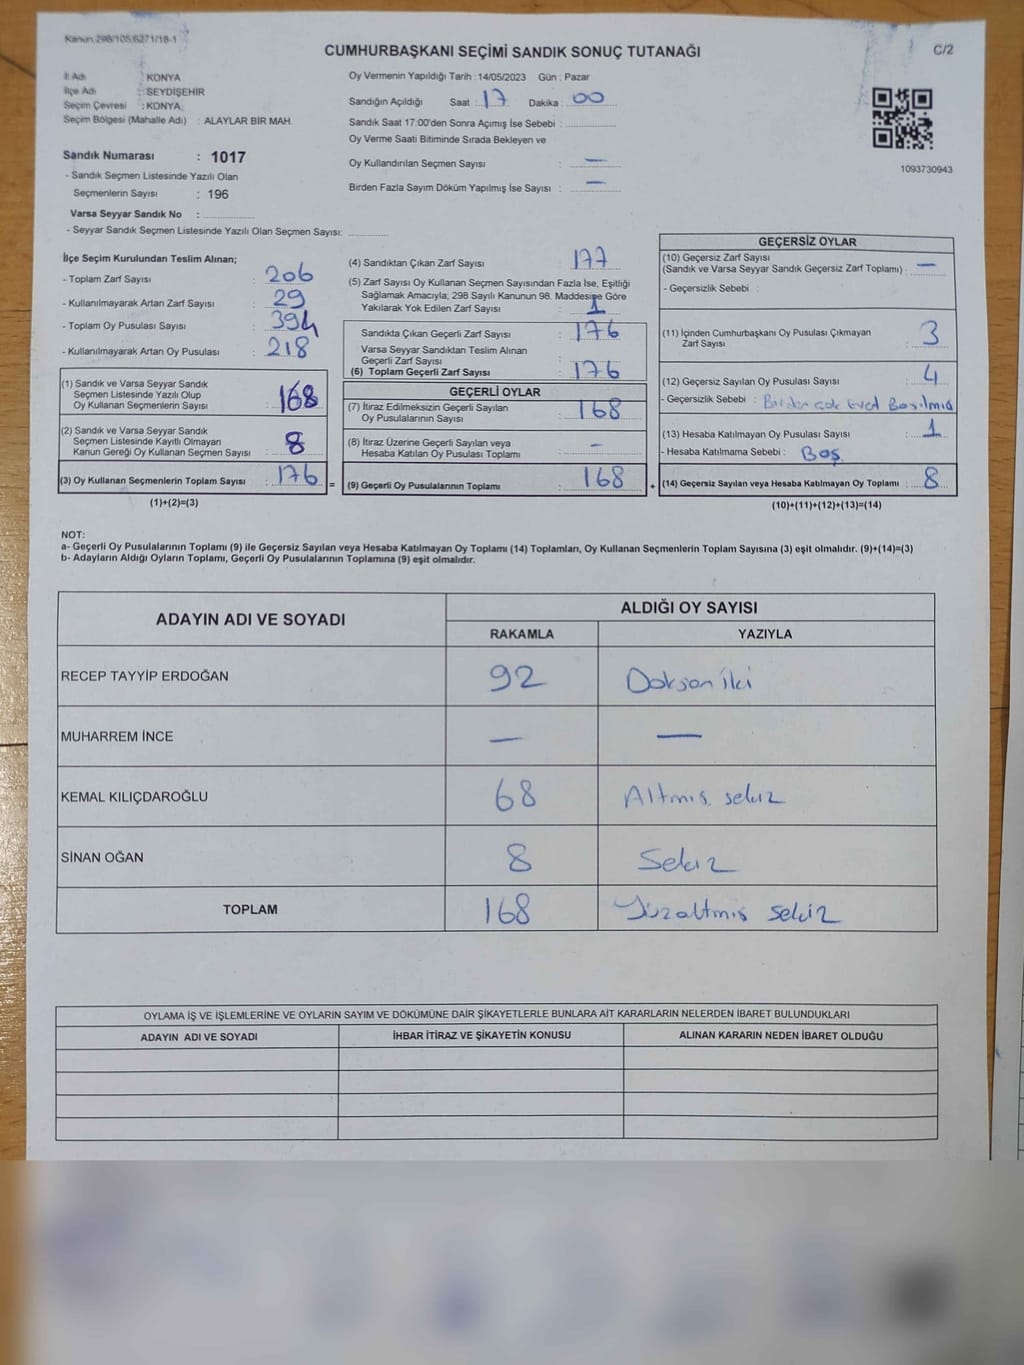 Kanun 298/105,6271/18-1
CUMHURBAŞKANI SEÇİMİ SANDIK SONUÇ TUTANAĞI
C/2
İl Adı : KONYA
İlçe Adı : SEYDİŞEHİR
Seçim Çevresi : KONYA
Seçim Bölgesi (Mahalle Adı) : ALAYLAR BİR MAH.
Oy Vermenin Yapıldığı Tarih : 14/05/2023 Gün : Pazar
Sandığın Açıldığı Saat : 17 Dakika : 00
Sandık Saat 17:00'den Sonra Açımış İse Sebebi :
Oy Verme Saati Bitiminde Sırada Bekleyen ve
Oy Kullandırılan Seçmen Sayısı : —
Birden Fazla Sayım Döküm Yapılmış İse Sayısı : —
1093730943
Sandık Numarası : 1017
- Sandık Seçmen Listesinde Yazılı Olan
Seçmenlerin Sayısı : 196
Varsa Seyyar Sandık No :
- Seyyar Sandık Seçmen Listesinde Yazılı Olan Seçmen Sayısı:
İlçe Seçim Kurulundan Teslim Alınan;
- Toplam Zarf Sayısı : 206
- Kullanılmayarak Artan Zarf Sayısı : 29
- Toplam Oy Pusulası Sayısı : 394
- Kullanılmayarak Artan Oy Pusulası : 218
(1) Sandık ve Varsa Seyyar Sandık
Seçmen Listesinde Yazılı Olup
Oy Kullanan Seçmenlerin Sayısı : 168
(2) Sandık ve Varsa Seyyar Sandık
Seçmen Listesinde Kayıtlı Olmayan
Kanun Gereği Oy Kullanan Seçmen Sayısı : 8
(3) Oy Kullanan Seçmenlerin Toplam Sayısı : 176
(1)+(2)=(3)
(4) Sandıktan Çıkan Zarf Sayısı : 177
(5) Zarf Sayısı Oy Kullanan Seçmen Sayısından Fazla İse, Eşitliği
Sağlamak Amacıyla; 298 Sayılı Kanunun 98. Maddesine Göre
Yakılarak Yok Edilen Zarf Sayısı : 1
Sandıkta Çıkan Geçerli Zarf Sayısı : 176
Varsa Seyyar Sandıktan Teslim Alınan
Geçerli Zarf Sayısı :
(6) Toplam Geçerli Zarf Sayısı : 176
GEÇERLİ OYLAR
(7) İtiraz Edilmeksizin Geçerli Sayılan
Oy Pusulalarının Sayısı : 168
(8) İtiraz Üzerine Geçerli Sayılan veya
Hesaba Katılan Oy Pusulası Toplamı : —
= (9) Geçerli Oy Pusulalarının Toplamı : 168 +
GEÇERSİZ OYLAR
(10) Geçersiz Zarf Sayısı
(Sandık ve Varsa Seyyar Sandık Geçersiz Zarf Toplamı) : —
- Geçersizlik Sebebi :
(11) İçinden Cumhurbaşkanı Oy Pusulası Çıkmayan
Zarf Sayısı : 3
(12) Geçersiz Sayılan Oy Pusulası Sayısı : 4
- Geçersizlik Sebebi : Birden çok Evet Basılmış
(13) Hesaba Katılmayan Oy Pusulası Sayısı : 1
- Hesaba Katılmama Sebebi : Boş
(14) Geçersiz Sayılan veya Hesaba Katılmayan Oy Toplamı : 8
(10)+(11)+(12)+(13)=(14)
NOT:
a- Geçerli Oy Pusulalarının Toplamı (9) ile Geçersiz Sayılan veya Hesaba Katılmayan Oy Toplamı (14) Toplamları, Oy Kullanan Seçmenlerin Toplam Sayısına (3) eşit olmalıdır. (9)+(14)=(3)
b- Adayların Aldığı Oyların Toplamı, Geçerli Oy Pusulalarının Toplamına (9) eşit olmalıdır.
ADAYIN ADI VE SOYADI
ALDIĞI OY SAYISI
RAKAMLA YAZIYLA
RECEP TAYYİP ERDOĞAN 92 Doksan iki
MUHARREM İNCE — —
KEMAL KILIÇDAROĞLU 68 Altmış sekiz
SİNAN OĞAN 8 Sekiz
TOPLAM 168 Yüzaltmış sekiz
OYLAMA İŞ VE İŞLEMLERİNE VE OYLARIN SAYIM VE DÖKÜMÜNE DAİR ŞİKAYETLERLE BUNLARA AİT KARARLARIN NELERDEN İBARET BULUNDUKLARI
ADAYIN ADI VE SOYADI İHBAR İTİRAZ VE ŞİKAYETİN KONUSU ALINAN KARARIN NEDEN İBARET OLDUĞU